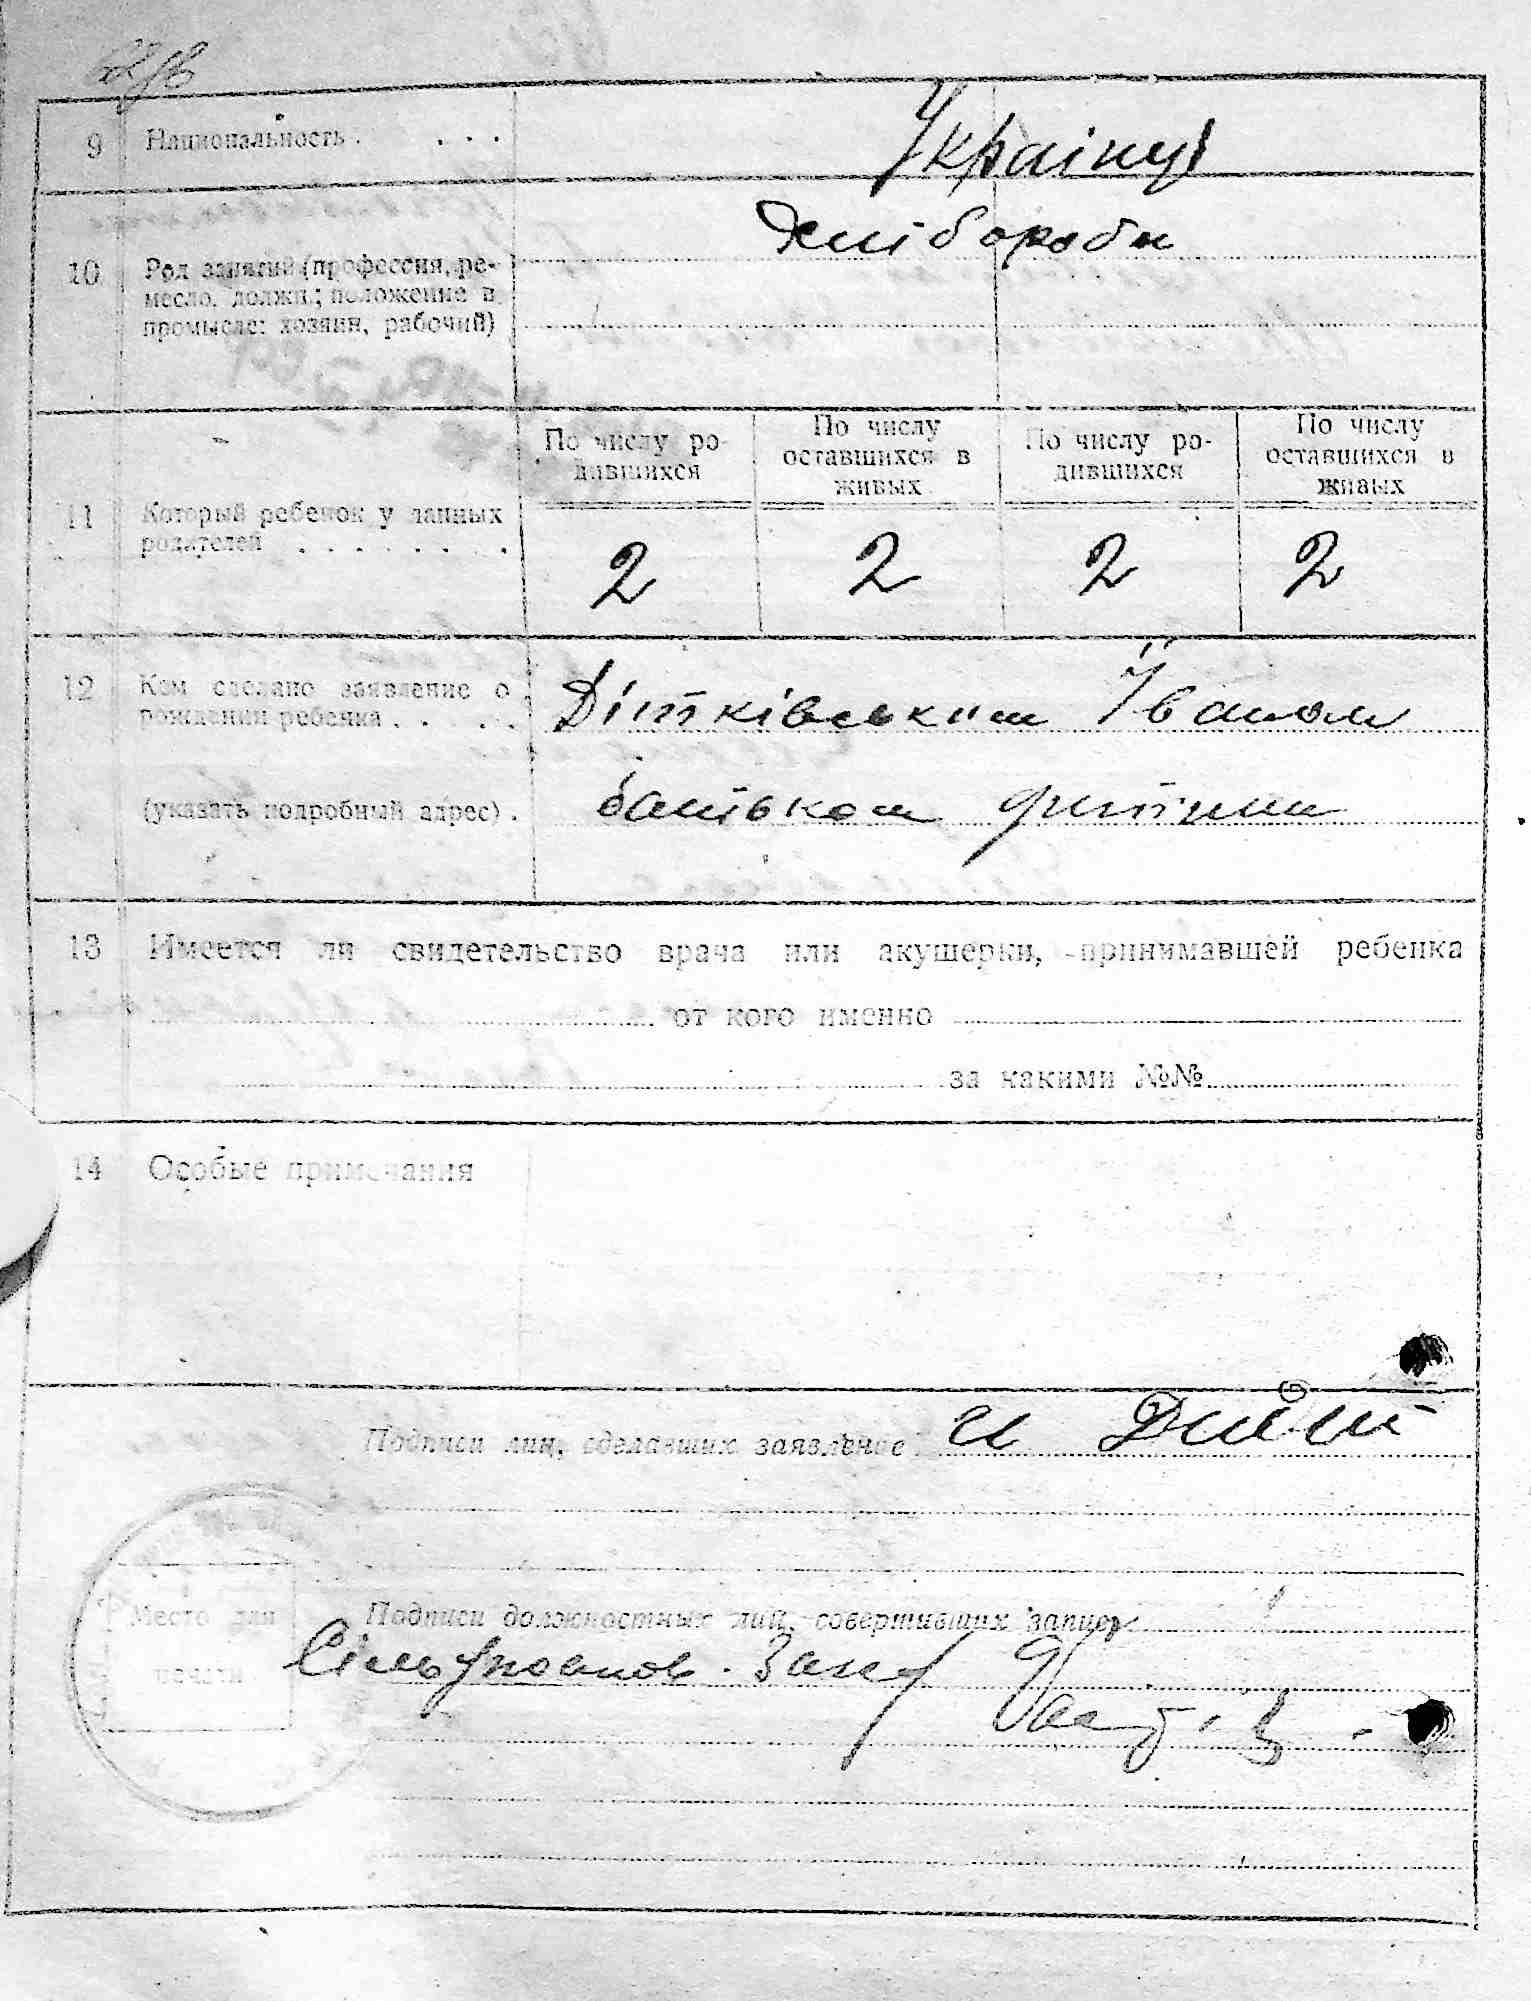 9 Национальность . . . . Українці
10 Род занятий (профессия, ре-
месло, должн.; положение в
промысле: хозяин, рабочий)
Хліборобы
11 Который ребенок у данных
родителей . . . . . . .
По числу ро-
дившихся
По числу
оставшихся в
живых
По числу ро-
дившихся
По числу
оставшихся в
живых
2 2 2 2
12 Кем сделано заявление о
рождении ребенка . . . .
(указать подробный адрес) .
Дітківським Іваном
батьком дитини
13 Имеется ли свидетельство врача или акушерки, принимавшей ребенка
от кого именно
за какими №№
14 Особые примечания
Подписи лиц, сделавших заявление
Место для
печати
Подписи должностных лиц, совершивших запись